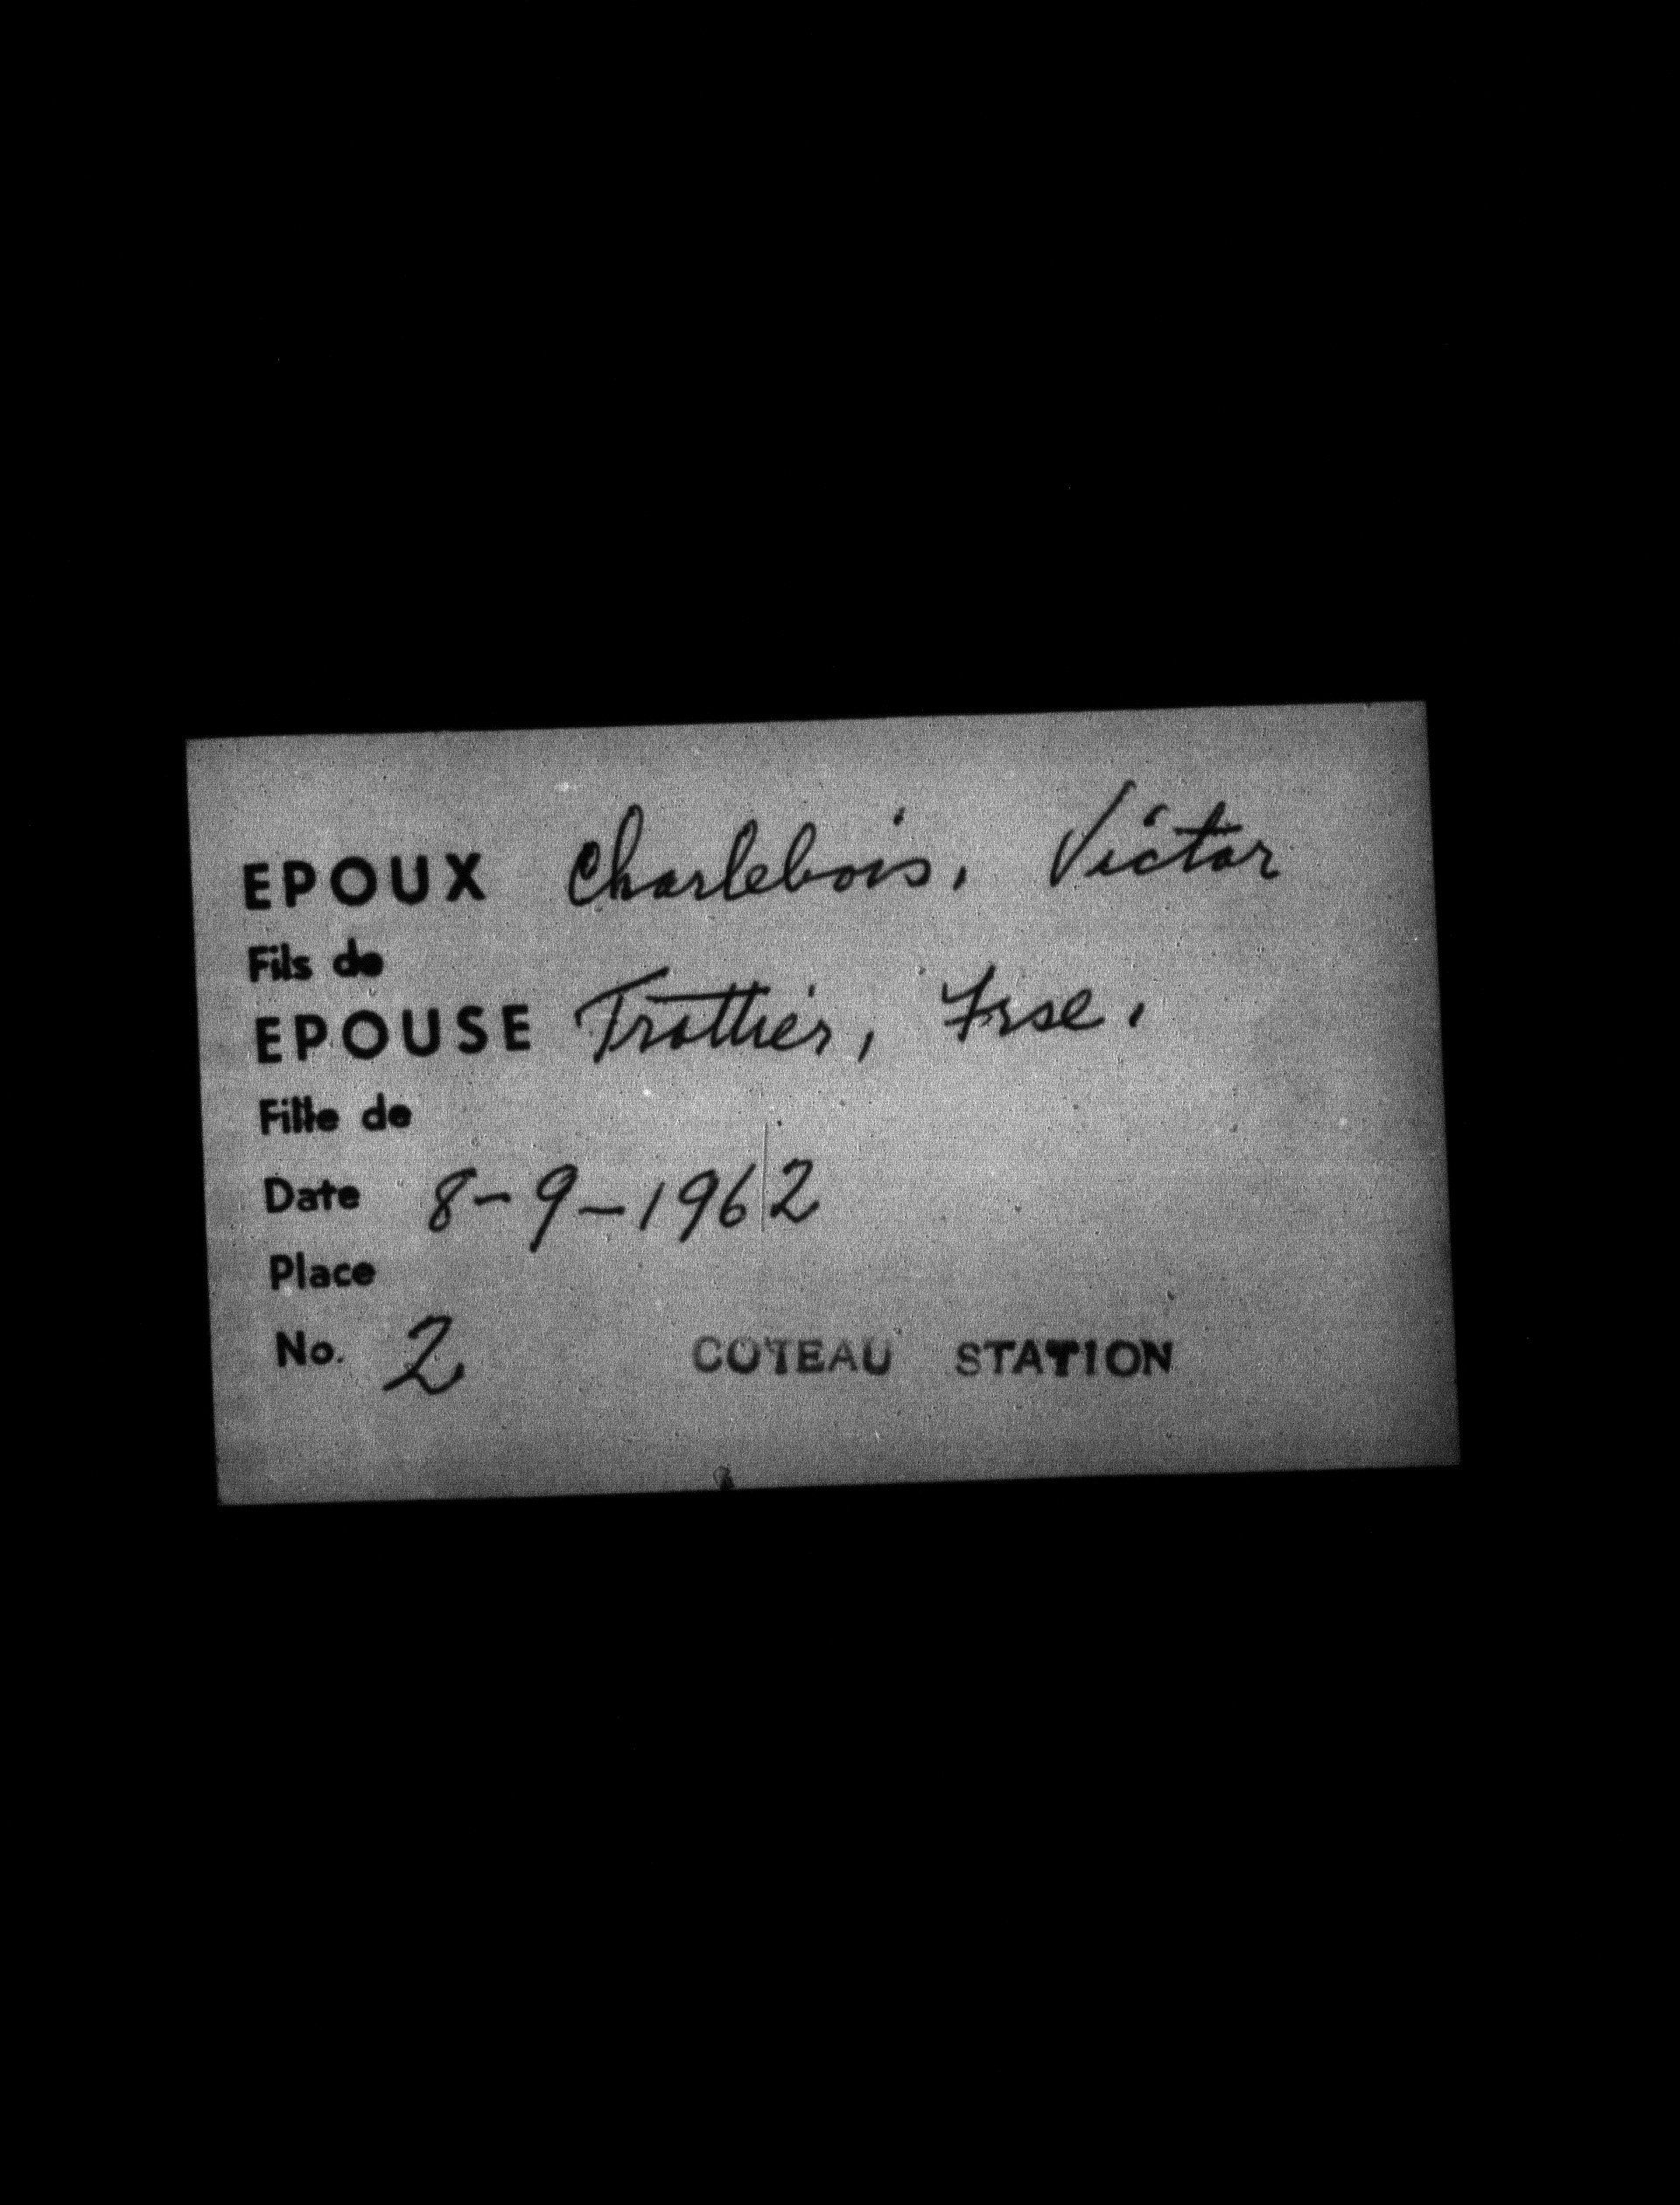 EPOUX Charlebois, Victor
Fils de
EPOUSE Trottier, Frse.
Fille de
Date 8-9-1962
Place
No. 2 COTEAU STATION